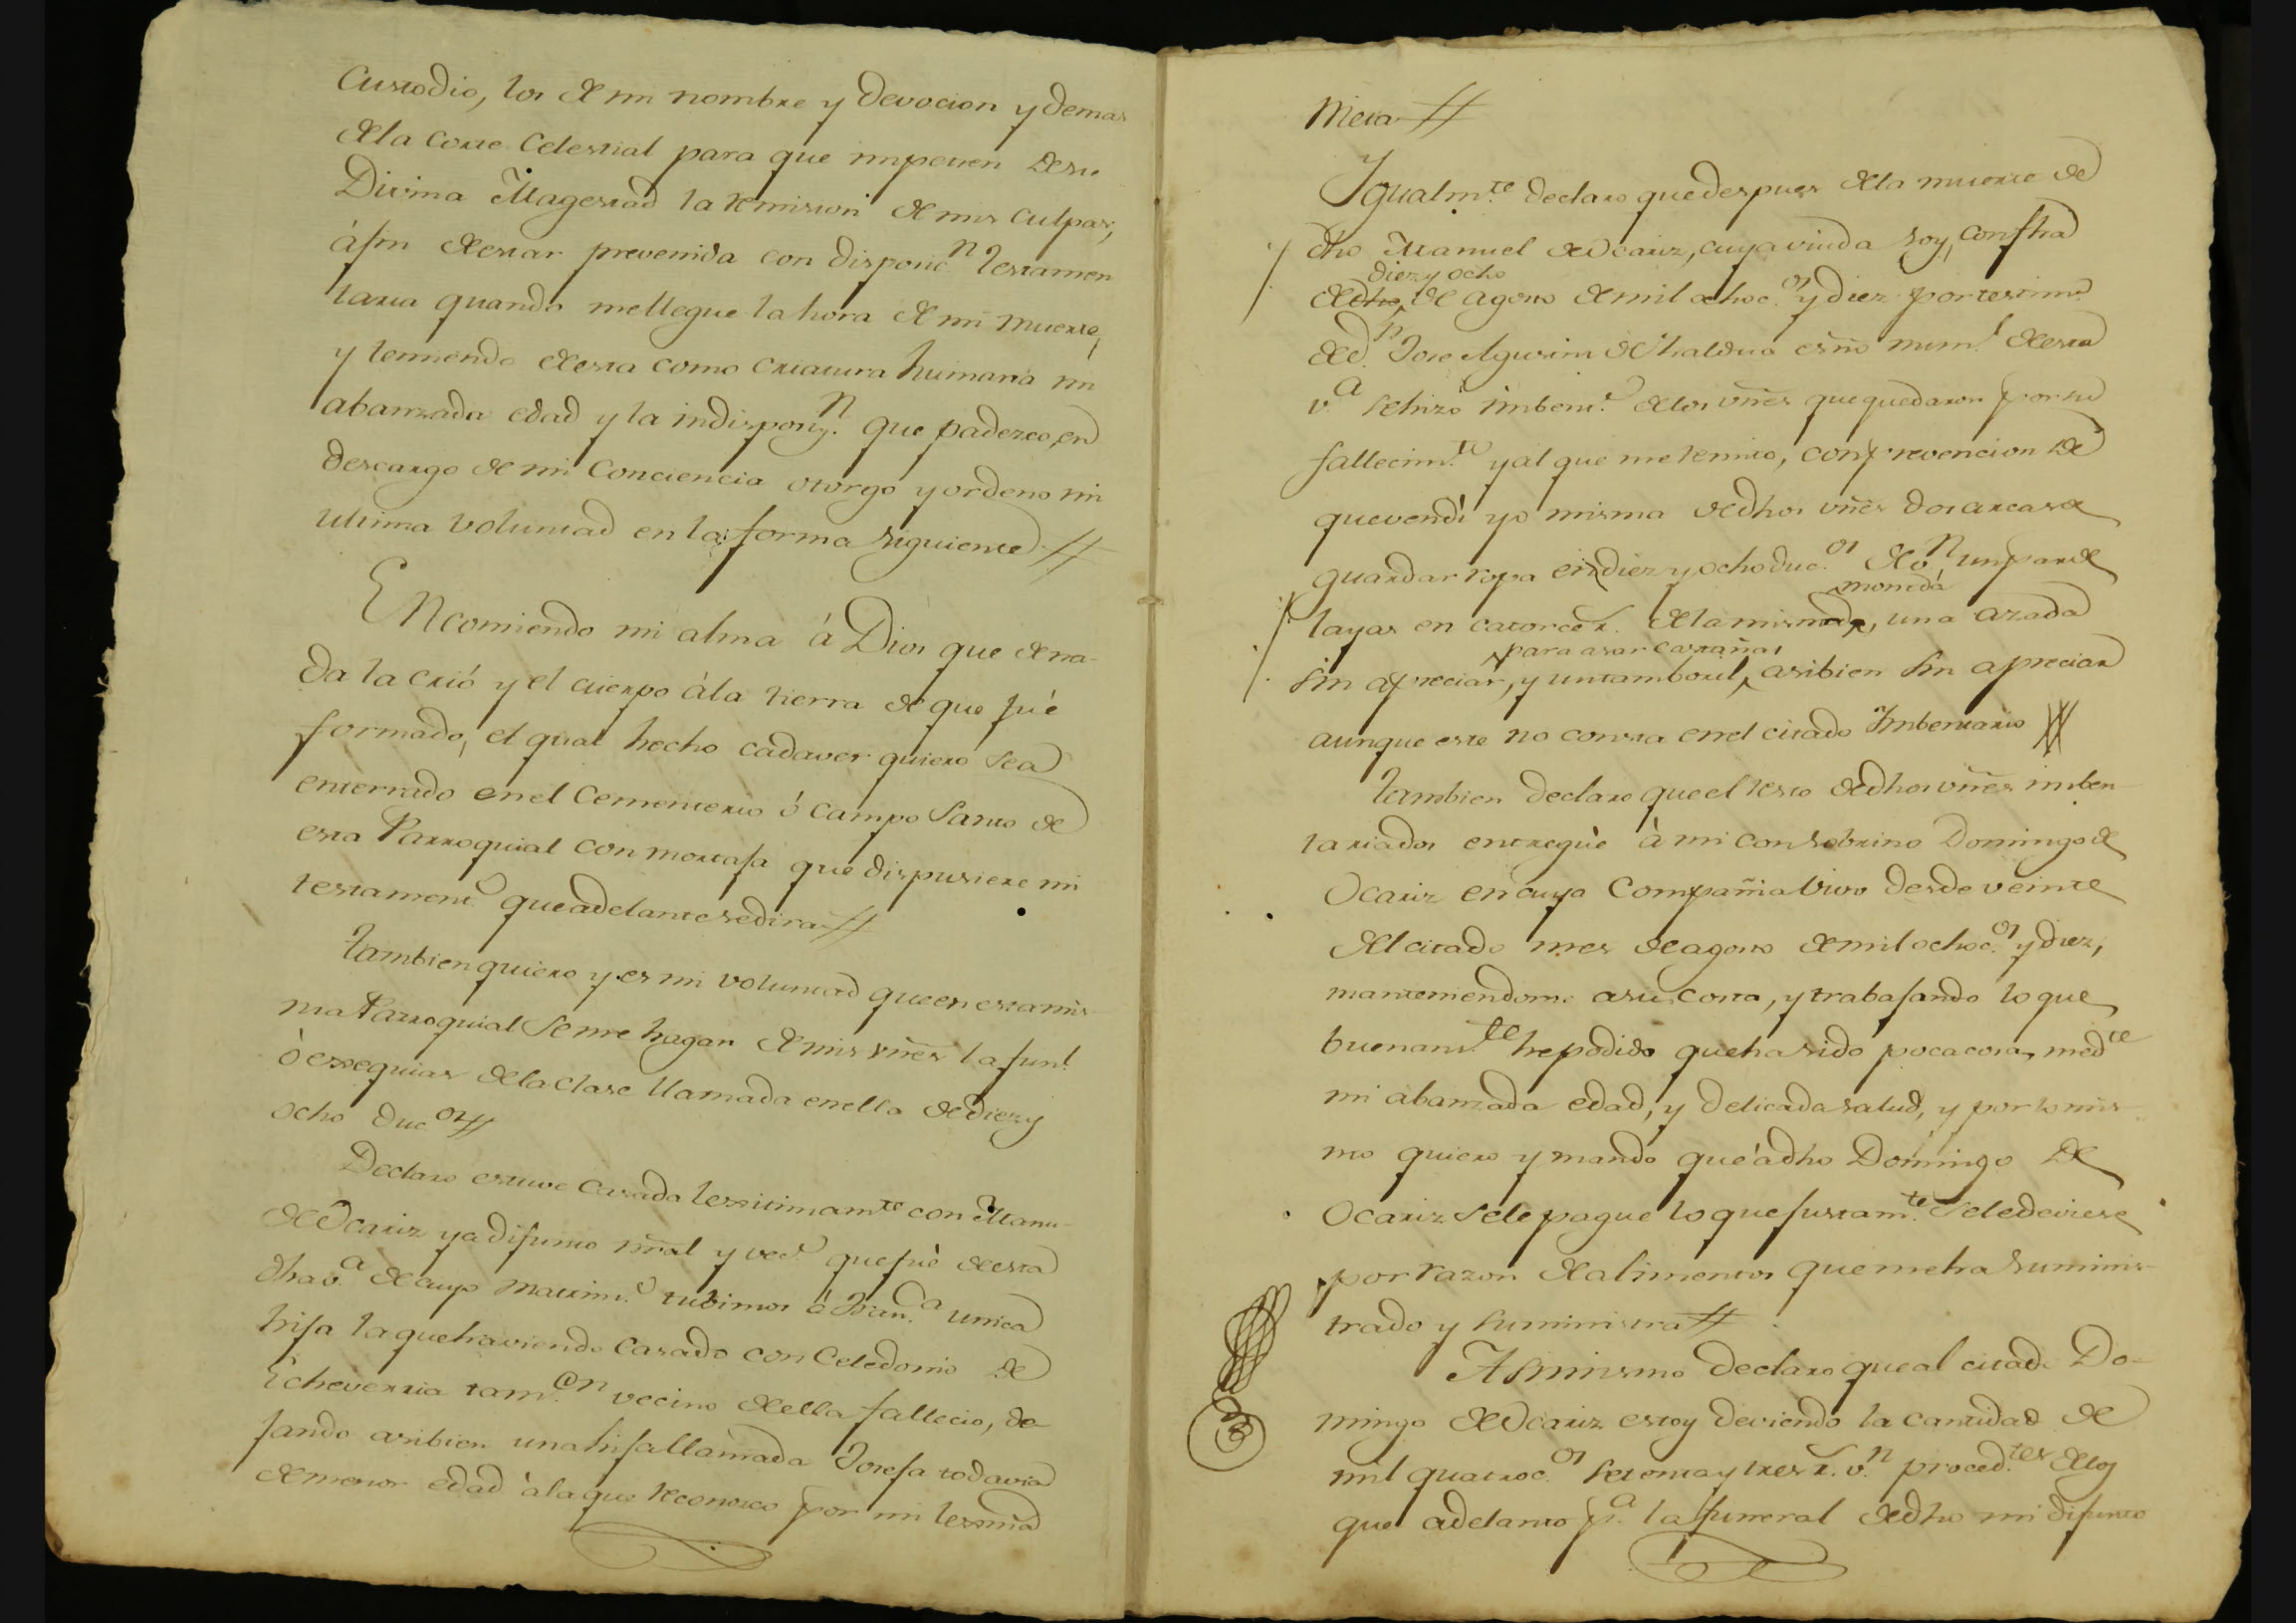 Custodio, los de mi nombre y devocion y demas
de la corte Celestial para que impetren de su
Divina Magestad la remision de mis culpas,
à fin de estar prevenida con disposic.n testamen
taria quando me llegue la hora de mi muerte,
y temiendo de esta como criatura humana mi
abanzada edad y la indisposiz.n que padezco, en
descargo de mi Conciencia otorgo y ordeno mi
ultima voluntad en la forma siguiente //
Encomiendo mi alma à Dios que de na-
da la crió y el cuerpo à la tierra de que fué
formado, el qual hecho cadaver quiero sea
enterrado en el Cementerio ó Campo Santo de
esta Parroquial con mortaja que dispusiere mi
testament.o que adelante se dira //
Tambien quiero y es mi voluntad que en esta mis-
ma Parroquial se me hagan de mis vñes la fun.l
ò exequias de la clase llamada en ella de diez y
ocho duc.os //
Declaro estuve casada lexitimam.te con Manu-
de Ocariz ya difunto nral y vec.o que fuè de esta
dha v.a de cuyo matrim.o tubimos à Juan.a unica
hija la que haviendo casado con Celedonio de
Echeverria tam.en vecino de ella fallecio, de
jando asibien una hija llamada Josefa todavia
de menor edad à la que reconozco por mi lexma
Nieta //
Igualm.te declaro que despues de la muerte de
dho Manuel de Ocariz, cuya viuda soy, con fha
diez y ocho
de dho, de agosto de mil ochoc.os y diez por testim.o
de D.n Jose Agustin de Ythaldua esño num.l de esta
v.a se hizo imbent.o de los vñes que quedaron por su
fallecim.to y al que me remito, con prevencion de
que vendi yo misma de dhos vñes dos arcas de
guardar ropa en diez y ocho duc.os de v.n un par de
moneda
layas en catorce r.s de la misma, una azada
para asar castañas
sin apreciar, y un tamboril, asibien sin apreciar
aunque este no consta en el citado Imbentario //
Tambien declaro que el resto de dhos vñes imben
tariados entregùe à mi con sobrino Domingo de
Ocariz en cuya Compañia vivo desde veinte
del citado mes de agosto de mil ochoc.os y diez,
manteniendome a su costa, y trabajando lo que
buenam.te he podido que ha sido poca cosa, med.te
mi abanzada edad, y delicada salud, y por lo mis-
mo quiero y mando que à dho Domingo de
Ocariz se le pague lo que justam.te se le deviese
por razon de alimentos que me ha suminis-
trado y suministra //
Asimismo declaro que al citado Do-
mingo de Ocariz estoy deviendo la cantidad de
mil quatroc.os setenta y tres r.s v.n proced.tes de los
que adelanto p.a la funeral de dho mi difunto